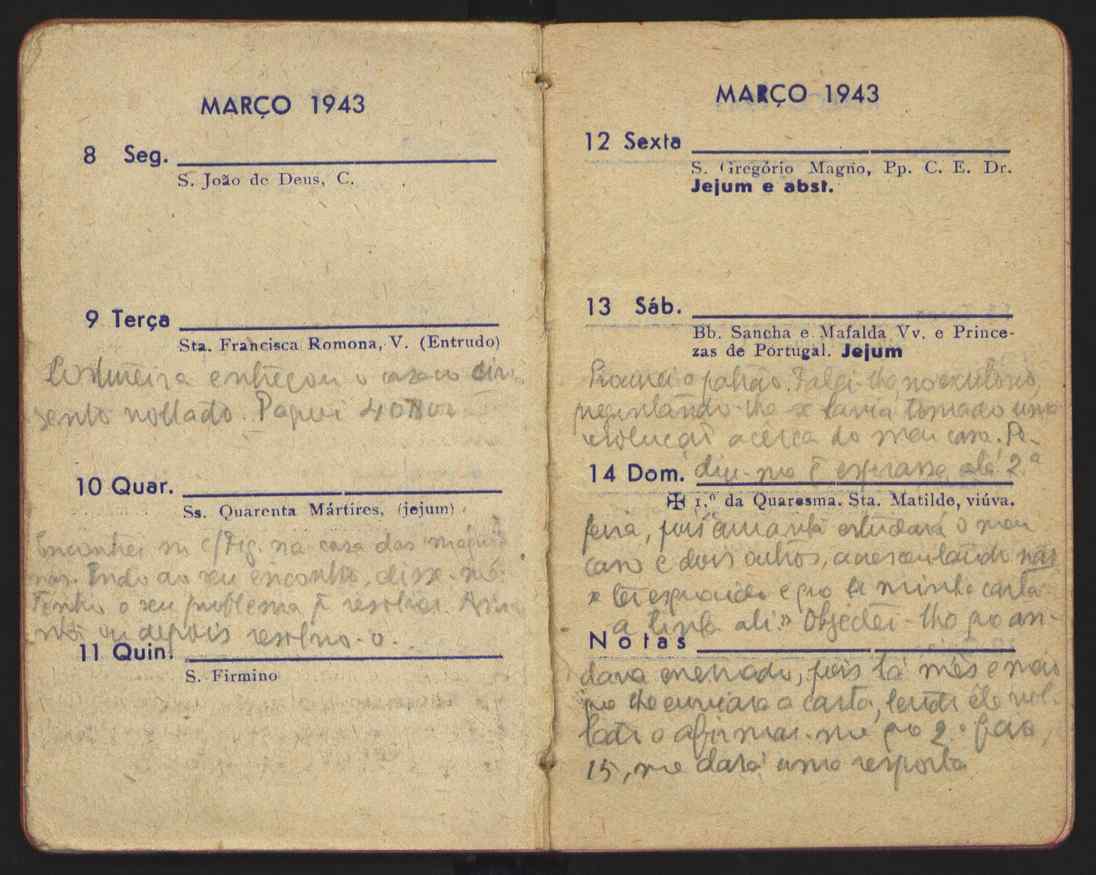 MARÇO 1943
8 Seg.
S. João de Deus, C.
9 Terça
Sta. Francisca Romona, V. (Entrudo)
Costureira entregou o casaco cin-
sento voltado. Paguei 40$00
10 Quar.
Ss. Quarenta Mártires, (jejum)
Encontrei na casa das máqui-
nas. Indo ao seu encontro, disse-me:
Tenho o seu problema p resolver.
ou depois resolvo-o.
11 Quin.
S. Firmino
MARÇO 1943
12 Sexta
S. Gregório Magno, Pp. C. E. Dr.
Jejum e abst.
13 Sáb.
Bb. Sancha e Mafalda Vv. e Prince-
zas de Portugal. Jejum
o patrão. Falei-lhe no escritório,
perguntando-lhe se havia tomado uma
resolução acêrca do meu caso. Pe-
14 Dom. diu-me q esperasse até 2.ª
1.º da Quaresma. Sta. Matilde, viúva.
feira, pois amanhã estudará o meu
caso e dois outros, acrescentando não
se ter esquecido e que a minha carta
"a tinha ali." Objectei-lhe que an-
Notas
dava enervado, pois há mês e meio
que lhe enviara a carta, tendo êle vol-
tado a afirmar-me que 2.ª feira,
15, me dará uma resposta